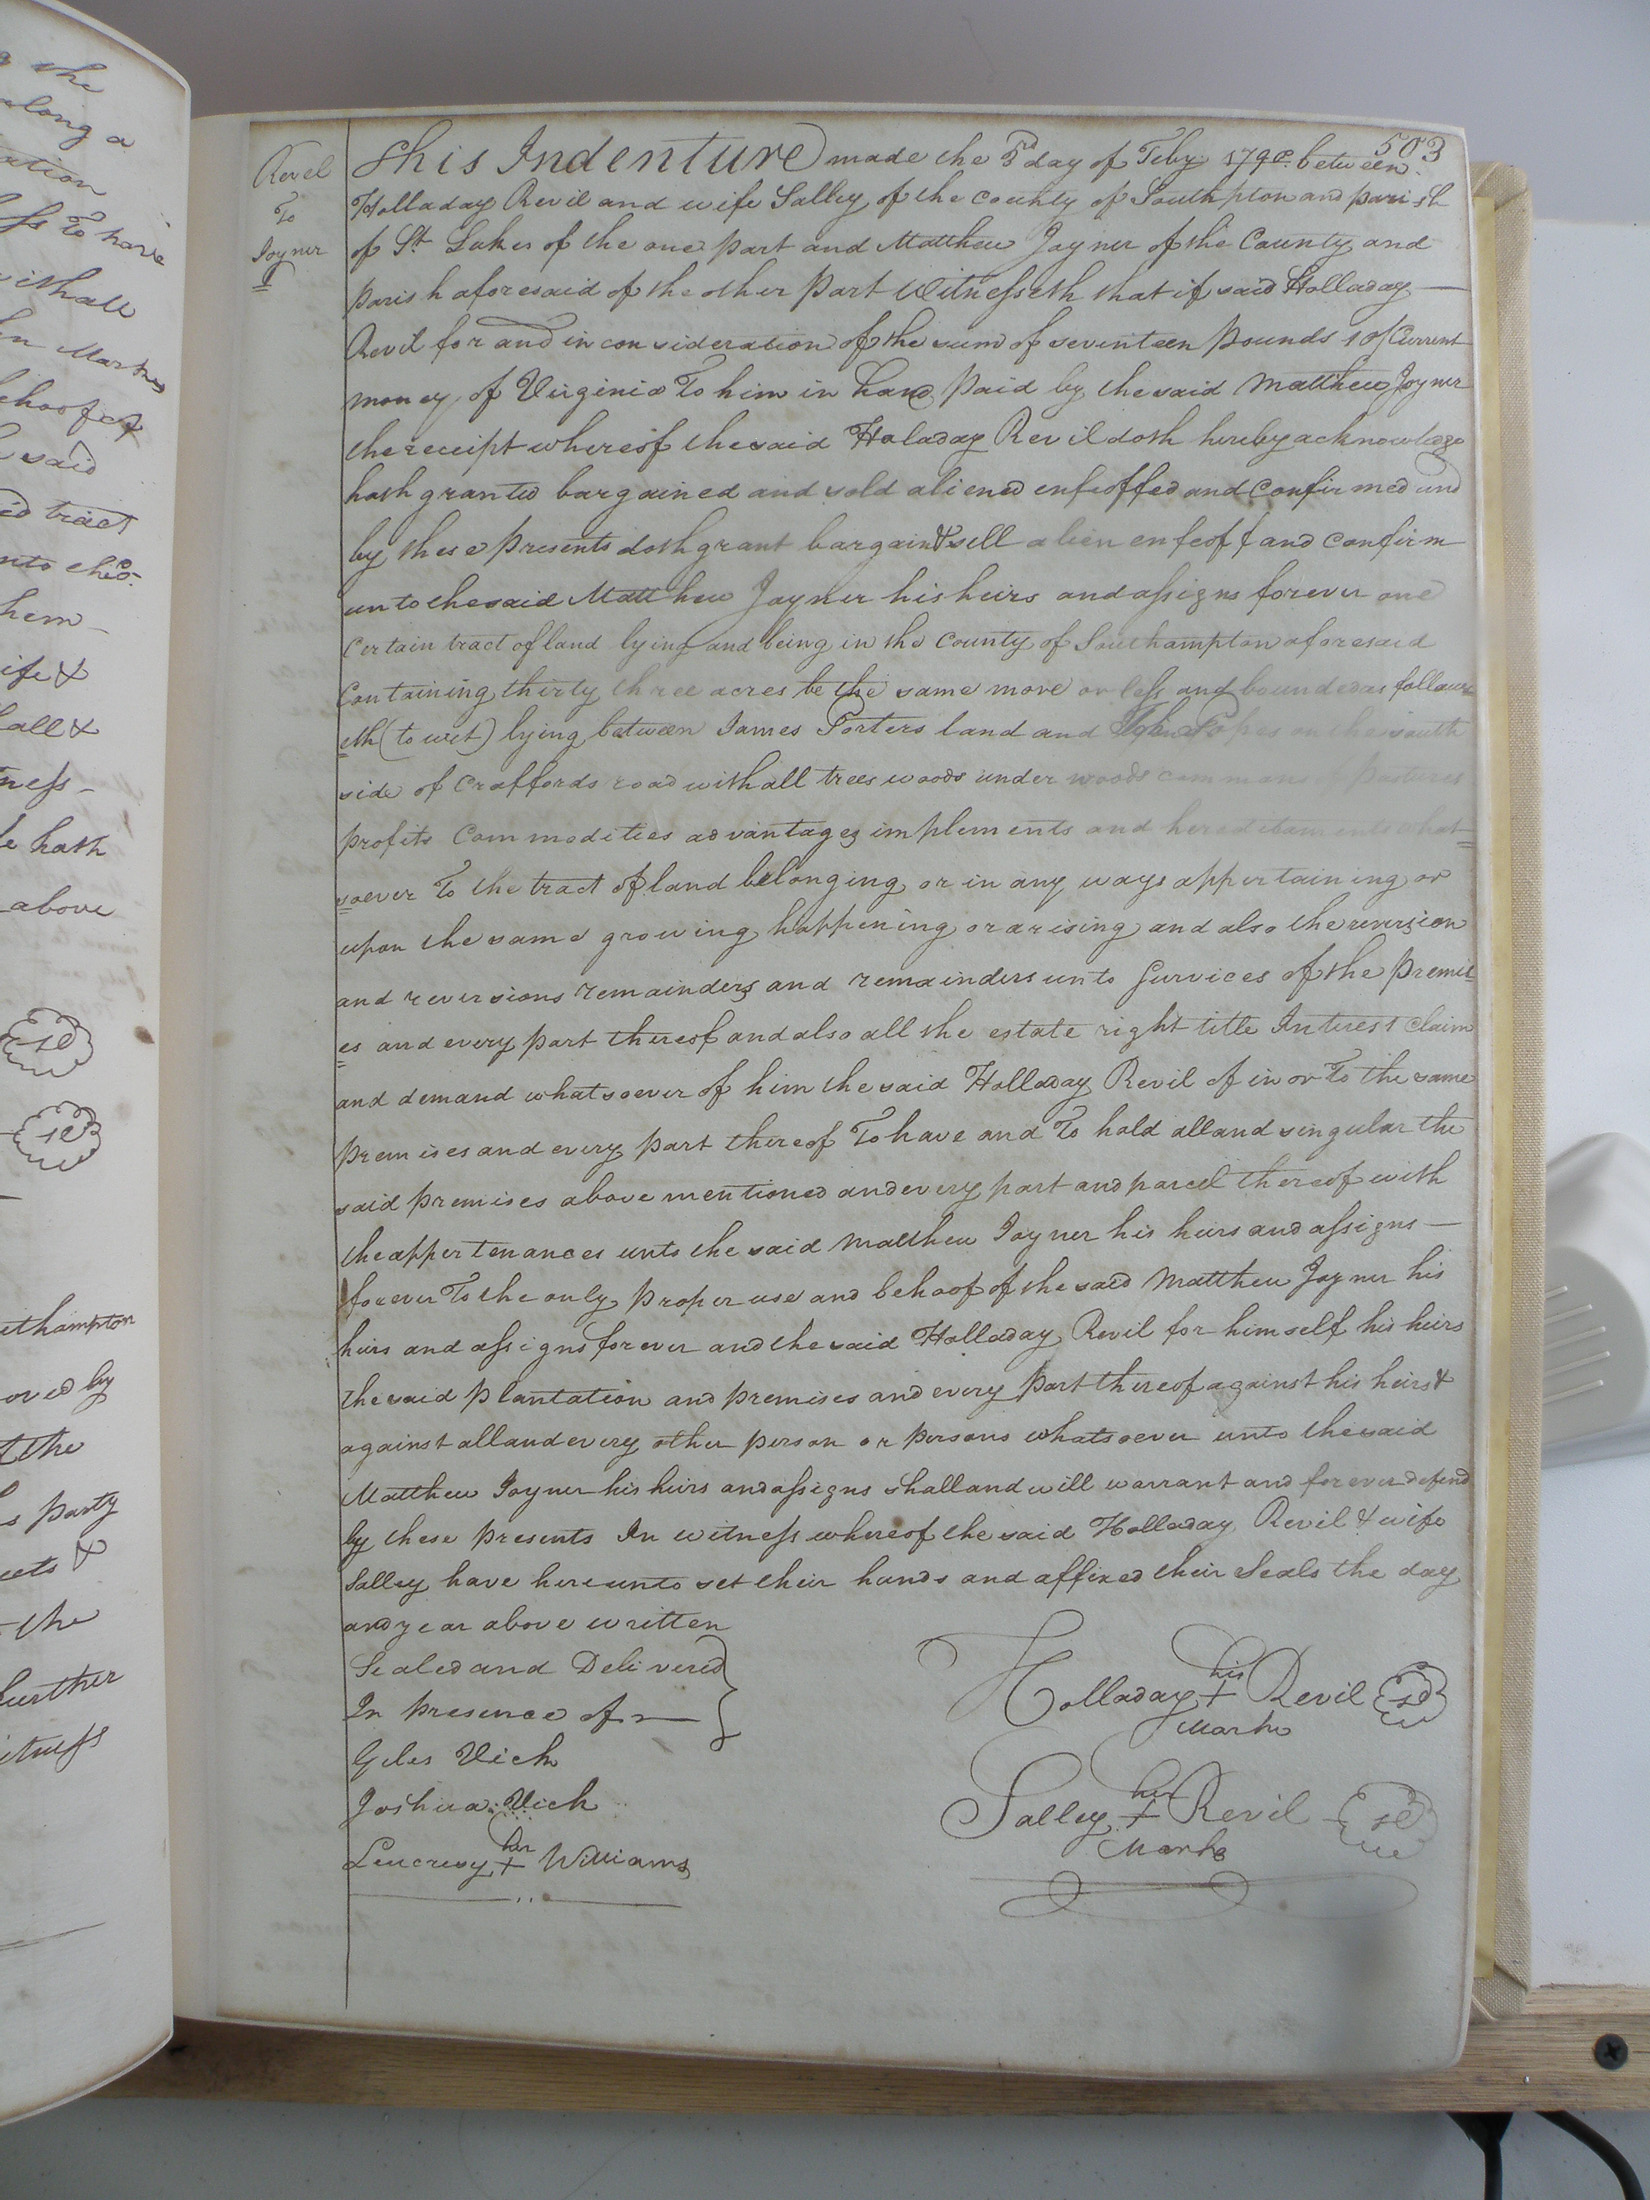 503
Revel
To
Joyner
This Indenture made the 3rd day of Feby. 1790. between
Holladay Revil and wife Salley of the county of Southpton and parish
of St. Lukes of the one part and Matthew Joyner of the County and
Parish aforesaid of the other Part Witnesseth that if said Holladay
Revil for and in consideration of the sum of seventeen Pounds 10/ Current
money of Virginia To him in hand Paid by the said Matthew Joyner
the receipt whereof the said Holaday Revil doth hereby acknowledge
hath granted bargained and sold aliened enfeoffed and confirmed and
by these Presents doth grant bargain & sell alien enfeoff and confirm
unto the said Matthew Joyner his heirs and assigns forever one
Certain tract of land lying and being in the County of Southampton aforesaid
Containing thirty three acres be the same more or less and bounded as follow
eth (to wit) lying between James Porters land and John Popes on the south
side of Craffords road with all trees woods under woods commons & Pastures
profits Commodities advantages implements and hereditaments what
soever To the tract of land belonging or in any ways appertaining or
upon the same growing happening or arising and also the reversion
and reversions remainders and remainders unto Survices of the Premis
es and every part thereof and also all the estate right title Interest claim
and demand whatsoever of him the said Holladay Revil of in or To the same
Premises and every part thereof To have and To hold all and singular the
said premises above mentioned and every part and parcel thereof with
the appertenances unto the said Matthew Joyner his heirs and assigns
forever To the only Proper use and behoof of the said Matthew Joyner his
heirs and assigns forever and the said Holladay Revil for himself his heirs
the said Plantation and premises and every Part thereof against his heirs &
against all and every other person or Persons whatsoever unto the said
Matthew Joyner his heirs and assigns shall and will warrant and forever defend
by these Presents In witness whereof the said Holladay Revil & wife
Salley have hereunto set their hands and affixed their Seals the day
and year above written
Sealed and Delivered
In Presence of
Giles Vick
Joshua Vick
her
Leucresy + Williams
his
Holladay + Revil
Mark
her
Salley + Revil
Mark
the
along a
To have
withall
said
tract
hem
ife &
all &
ness
hath
above
the
party
the
further